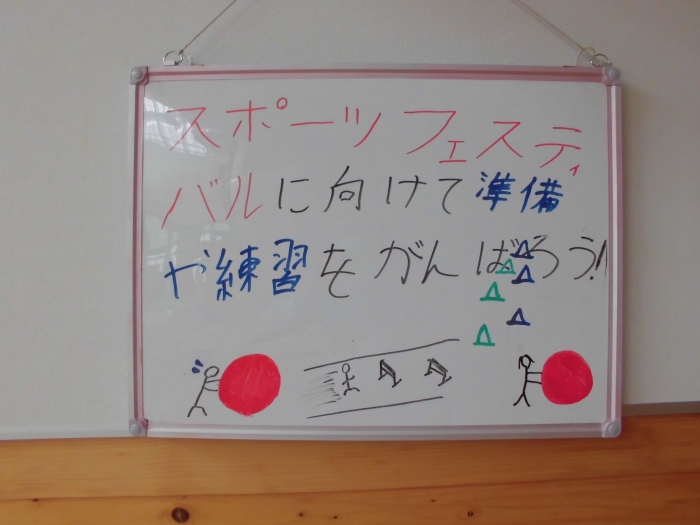 スポーツフェスティ
バルに向けて準備
や練習をがんばろう!!